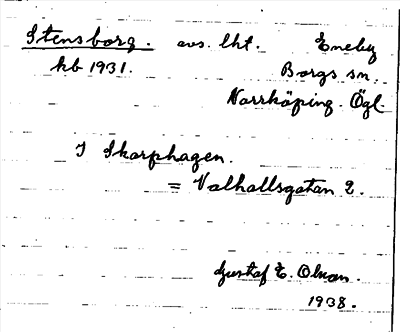 Stensborg. avs. lht. Eneby
kb 1931. Borgs sn.
Norrköping. Ögl.
I Skarphagen.
= Valhallsgatan 2.
Gustaf E. Olson.
1938.